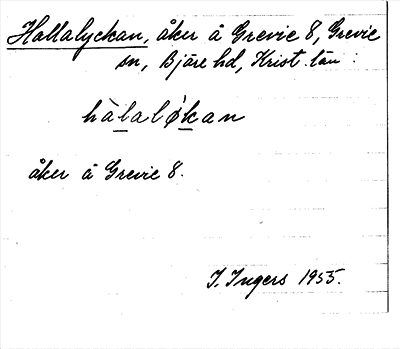 Hallalyckan, åker å Grevie 8, Grevie
sn, Bjäre hd, Krist. län:
hàlaløkan
åker å Grevie 8.
I. Ingers 1955.